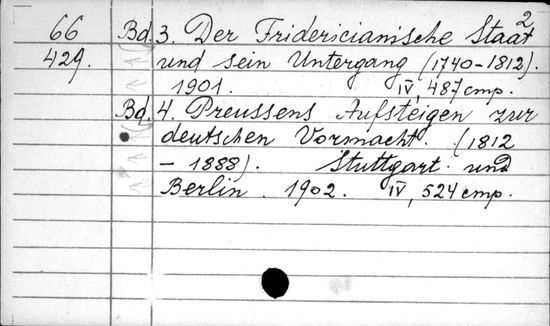 2
66 Bd. 3. Der Fridericianische Staat
429. und sein Untergang (1740-1812).
1901. IV, 487 cmp.
Bd. 4. Preussens Aufsteigen zur
deutschen Vormacht. (1812
- 1888). Stuttgart und
Berlin. 1902. IV, 524 cmp.